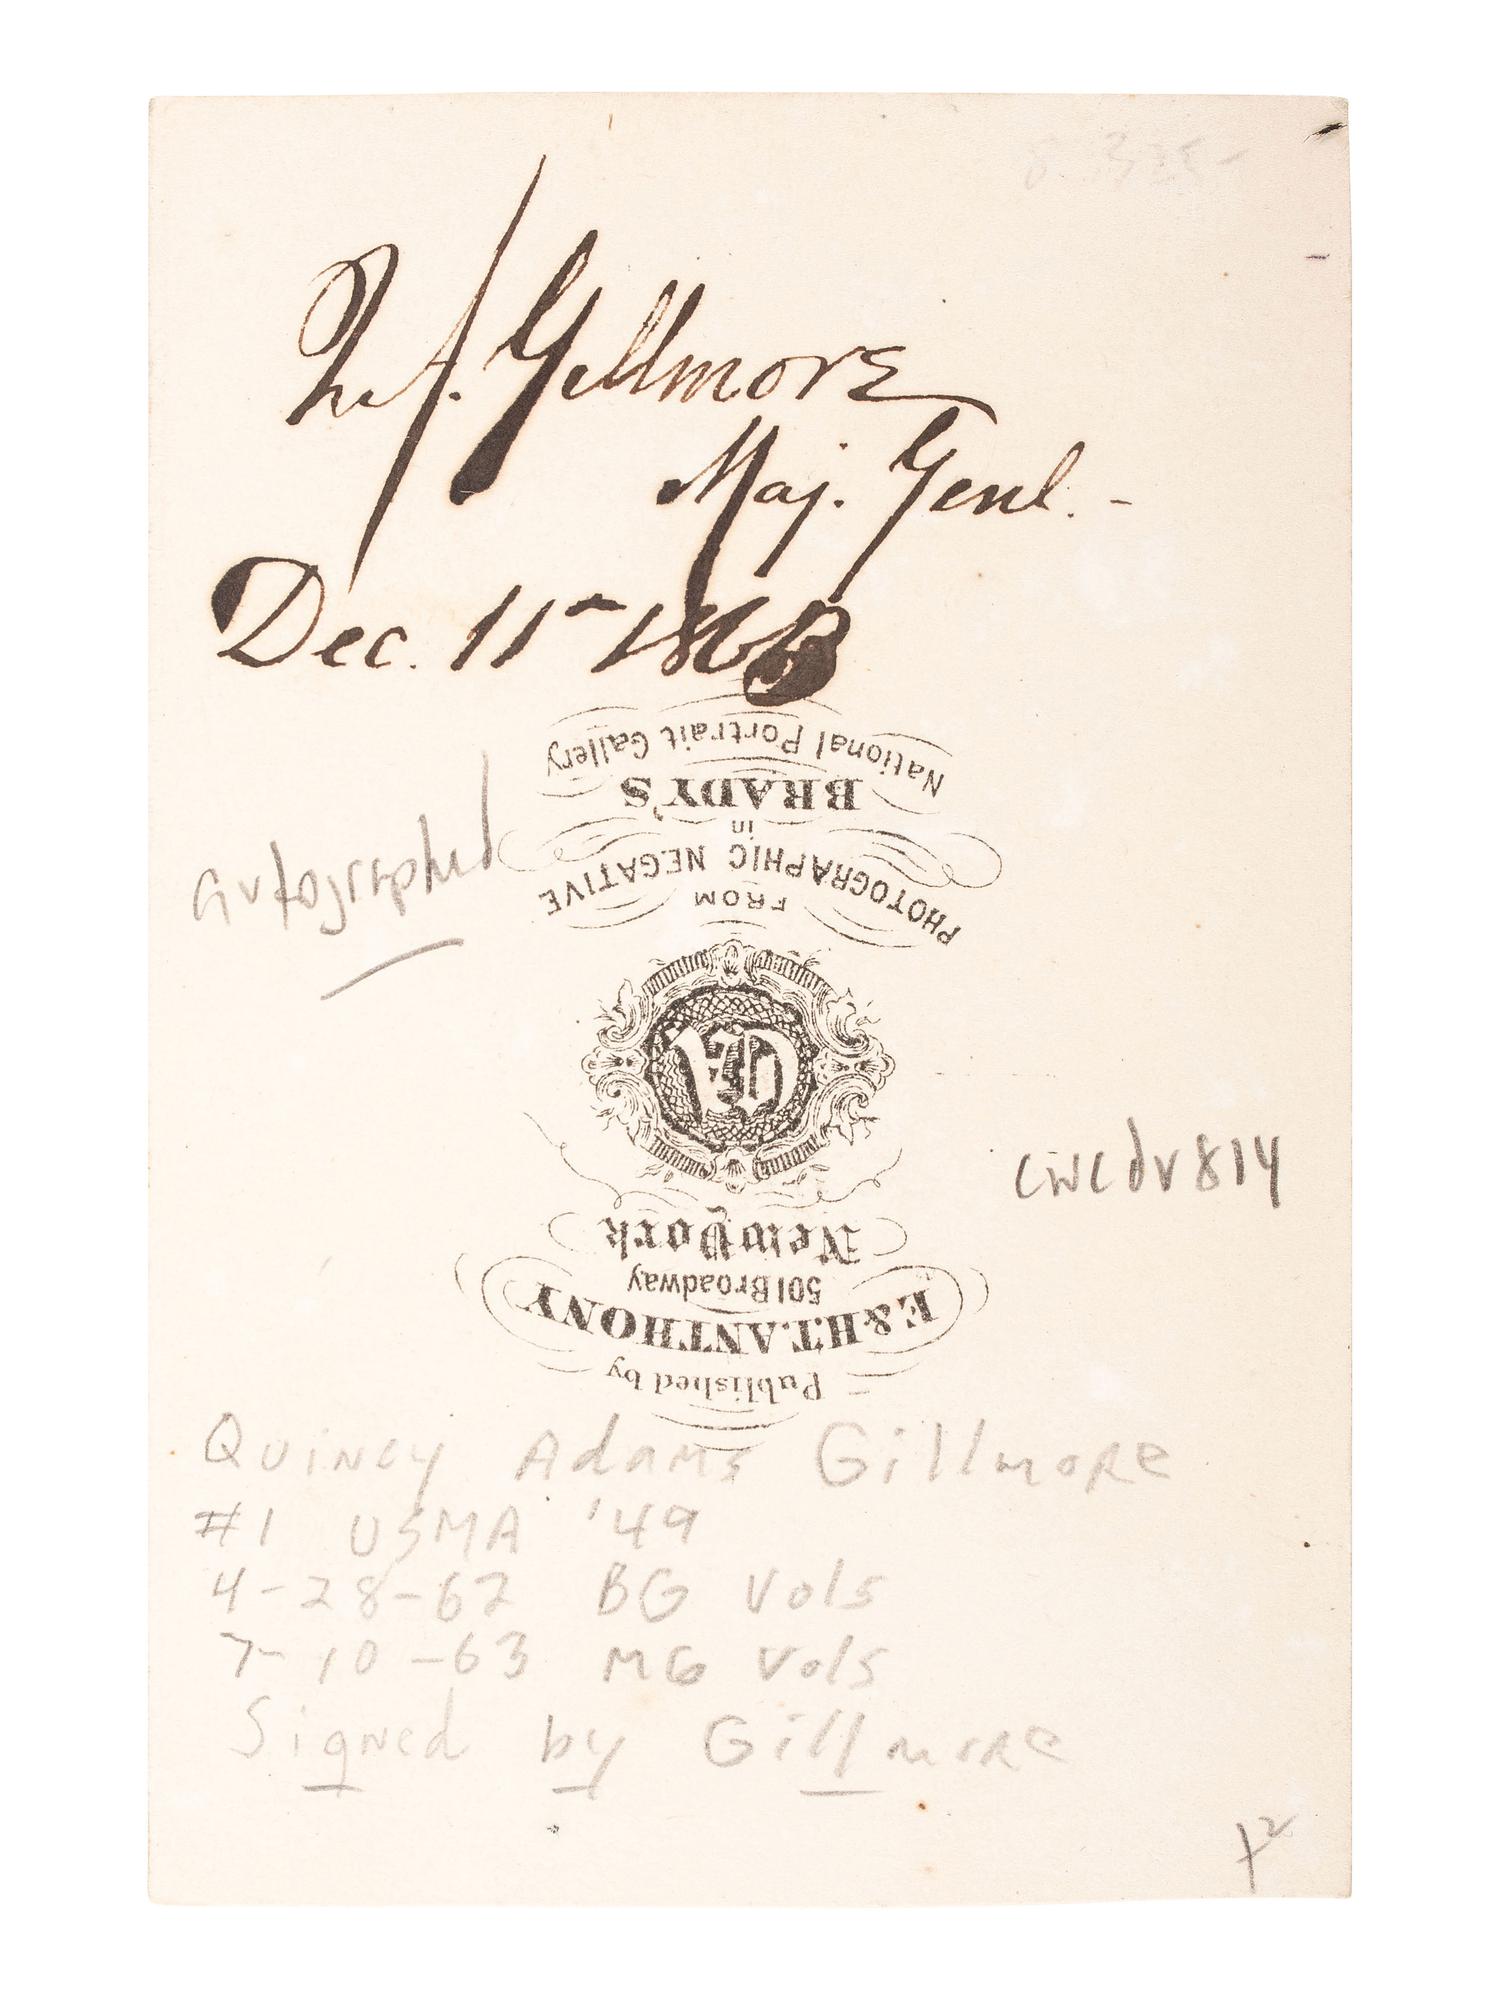 Q.A. Gillmore
Maj. Genl. -
Dec. 11th 1863
National Portrait Gallery
BRADY'S
in
PHOTOGRAPHIC NEGATIVE
FROM
autographed
cwcdv814
New York
501 Broadway
E. & H.T. ANTHONY
Published by
Quincy Adams Gillmore
#1 USMA '49
4-28-62 BG Vols
7-10-63 MG Vols
Signed by Gillmore